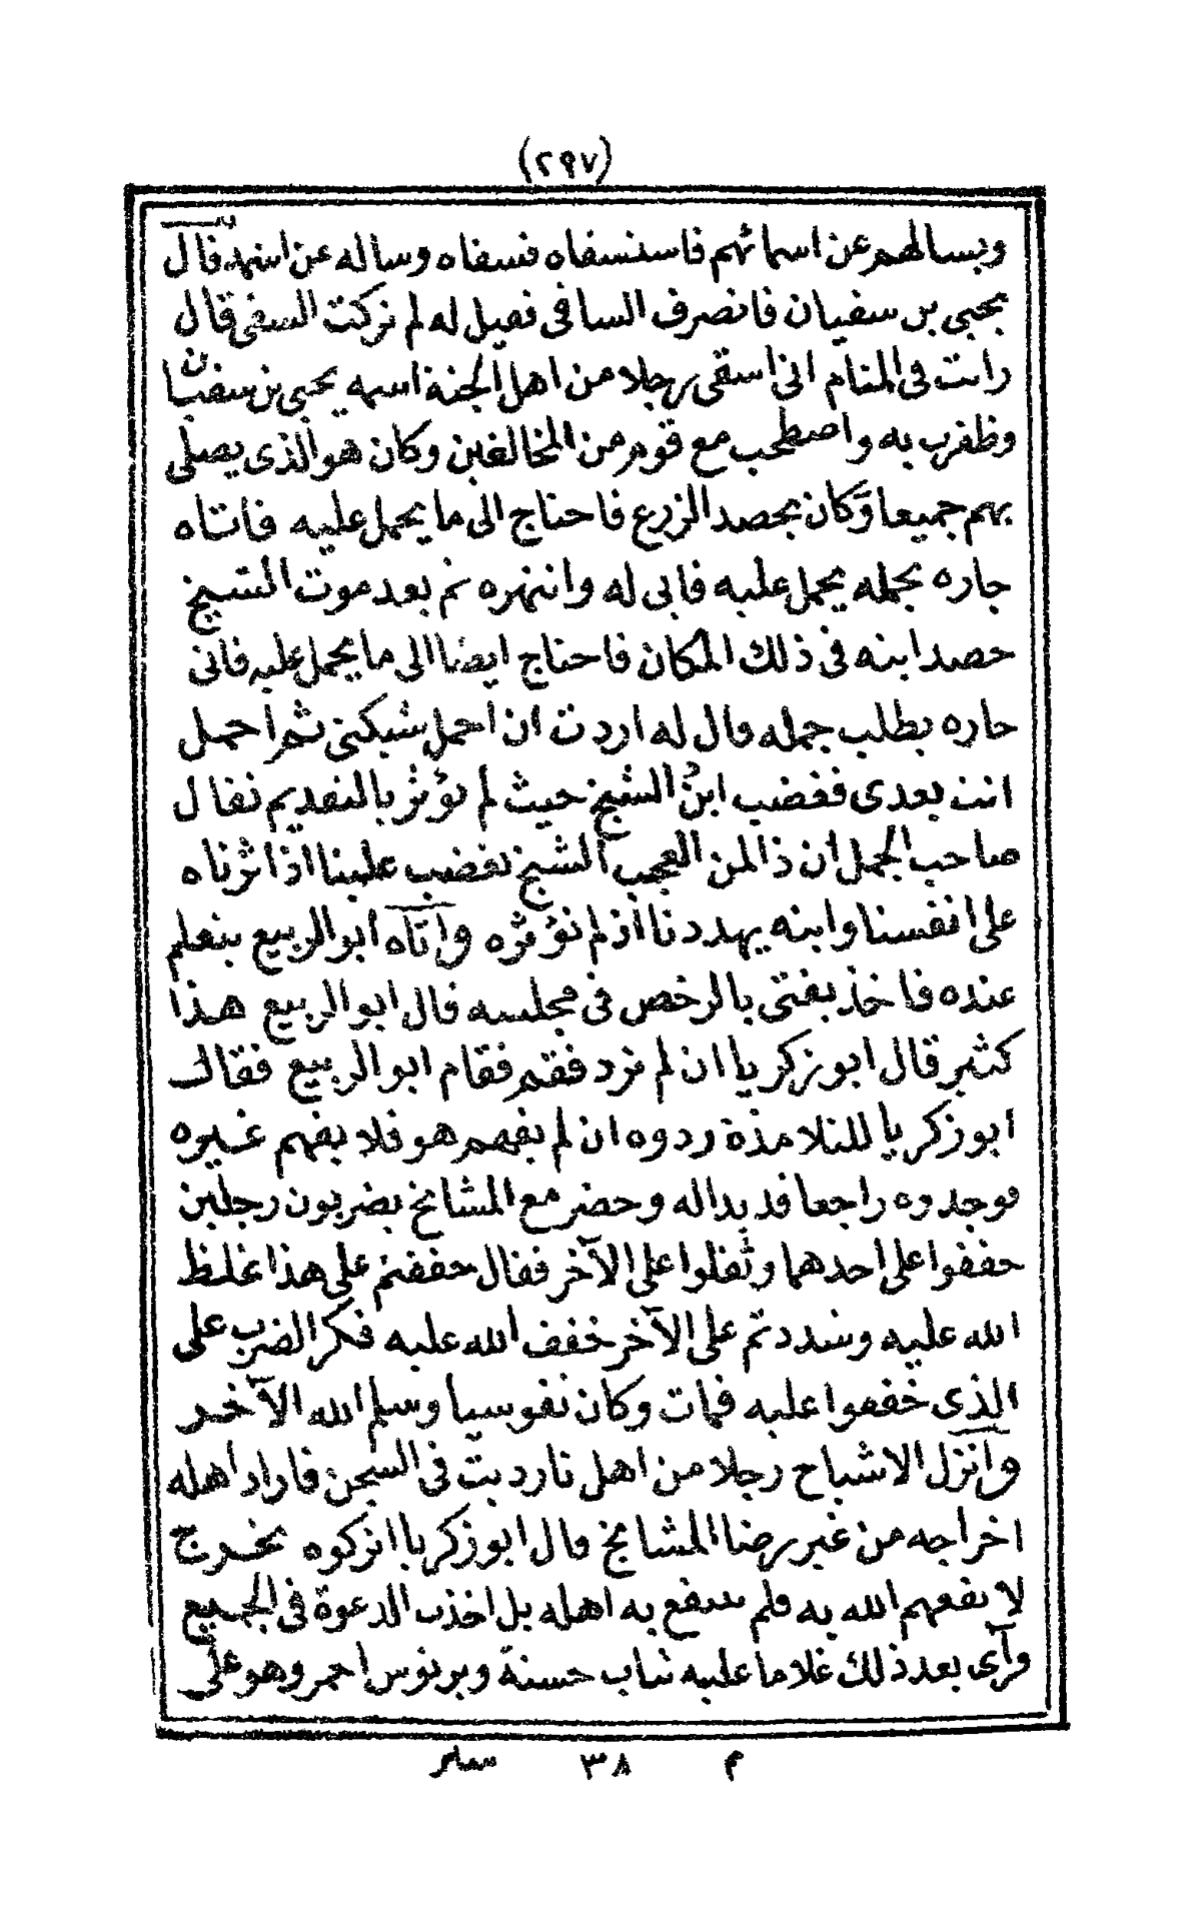 (٢٩٧)
ويسالهم عن اسمائهم فاستسقاه فسقاه وساله عن اسمه قال
يحيى بن سفيان فانصرف الساقى فقيل له لم تركت السقى قال
رايت فى المنام انى اسقى رجلا من اهل الجنة اسمه يحيى بن سفيان
وظفرت به واصطحب مع قوم من المخالفين وكان هو الذى يصلى
بهم جميعا وكان يحصد الزرع فاحتاج الى ما يحمل عليه فاتاه
جاره بجمله يحمل عليه فابى له وانتهره ثم بعد موت الشيخ
حصد ابنه فى ذلك المكان فاحتاج ايضا الى ما يحمل عليه فاتى
جاره يطلب جمله قال له اردت ان احمل شبكتى ثم احمل
انت بعدى فغضب ابن الشيخ حيث لم يؤثر بالتقديم فقال
صاحب الجمل ان ذا لمن العجب الشيخ يغضب علينا اذ اثرناه
على انفسنا وابنه يهددنا اذ لم نؤثره وأتاه ابو الربيع يتعلم
عنده فاخذ يفتى بالرخص فى مجلسه قال ابو الربيع هذا
كثير قال ابو زكرياا ان لم ترد فقم فقام ابو الربيع فقال
ابو زكريا للتلامذة ردوه ان لم يفهم هو فلا يفهم غيره
فوجدوه راجعا قد بداله وحضر مع المشايخ يضربون رجلين
خففوا على احدهما وثقلوا على الآخر فقال خففتم على هذا غلظ
الله عليه وشددتم على الآخر خفف الله عليه فكر الضرب على
الذى خففوا عليه فمات وكان نفوسيا وسلم الله الآخر
وأنزل الاشياخ رجلا من اهل تارديت فى السجن فاراد اهله
اخراجه من غير رضا المشايخ قال ابو زكريا اتركوه يخرج
لا نفعهم الله به فلم ينتفع به اهله بل اخذت الدعوة فى الجميع
ورأى بعد ذلك غلاما عليه ثياب حسنة وبرنوس احمر وهو على
م ٣٨ سير